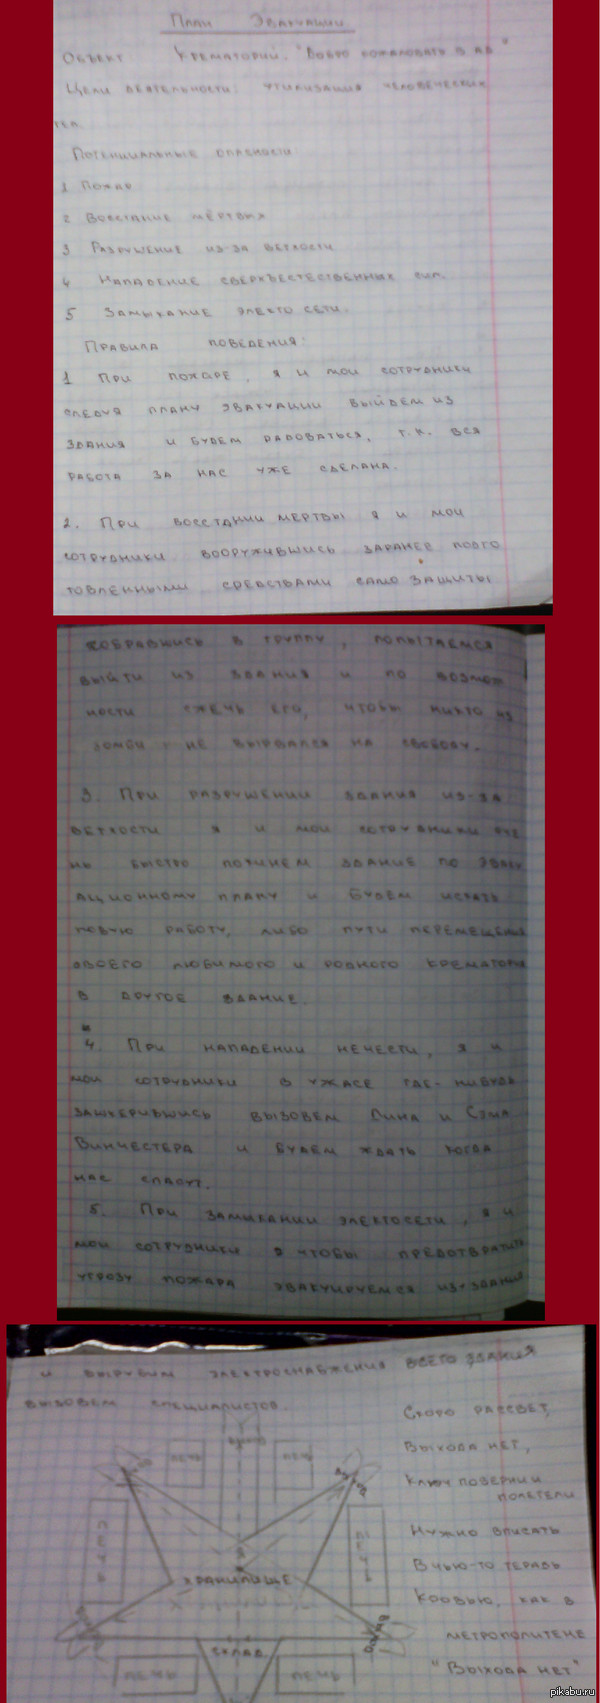 План Эвакуации
Объект Крематорий. "Добро пожаловать в ад"
Цели деятельности: утилизация человеческих
тел.
Потенциальные опасности
1 Пожар
2 Восстание мёртвых
3 Разрушение из-за ветхости
4 Нападение сверхъестественных сил.
5 Замыкание электо сети.
Правила поведения:
1 При пожаре, я и мои сотрудники
следуя плану эвакуации выйдем из
здания и будем радоваться, т.к. вся
работа за нас уже сделана.
2. При восстании мертвы я и мои
сотрудники вооружившись заранее подго
товленными средствами само защиты
собравшись в группу, попытаемся
выйти из здания и по возмож
ности сжечь его, чтобы никто из
зомби не вырвался на свободу.
3. При разрушении здания из-за
ветхости я и мои сотрудники оче
нь быстро покинем здание по эваку
ационному плану и будем искать
новую работу, либо пути перемещения
своего любимого и родного крематория
в другое здание.
4. При нападении нечести, я и
мои сотрудники в ужасе где-нибудь
зашкерившись вызовем Дина и Сэма
Винчестера и будем ждать когда
нас спасут.
5. При замыкании электосети, я и
мои сотрудники я чтобы предотвратить
угрозу пожара эвакуируемся из-здания
и вырубим электроснабжения всего здания
вызовем специалистов.
Скоро рассвет,
Выхода нет,
Ключ поверни и
полетели
Нужно вписать
В чью-то теradь
Кровью, как в
метрополитене
"Выхода нет"
выход
печь
печь
выход
выход
печь
печь
Я
хранилище
выход
выход
склад
печь
печь
pikabu.ru